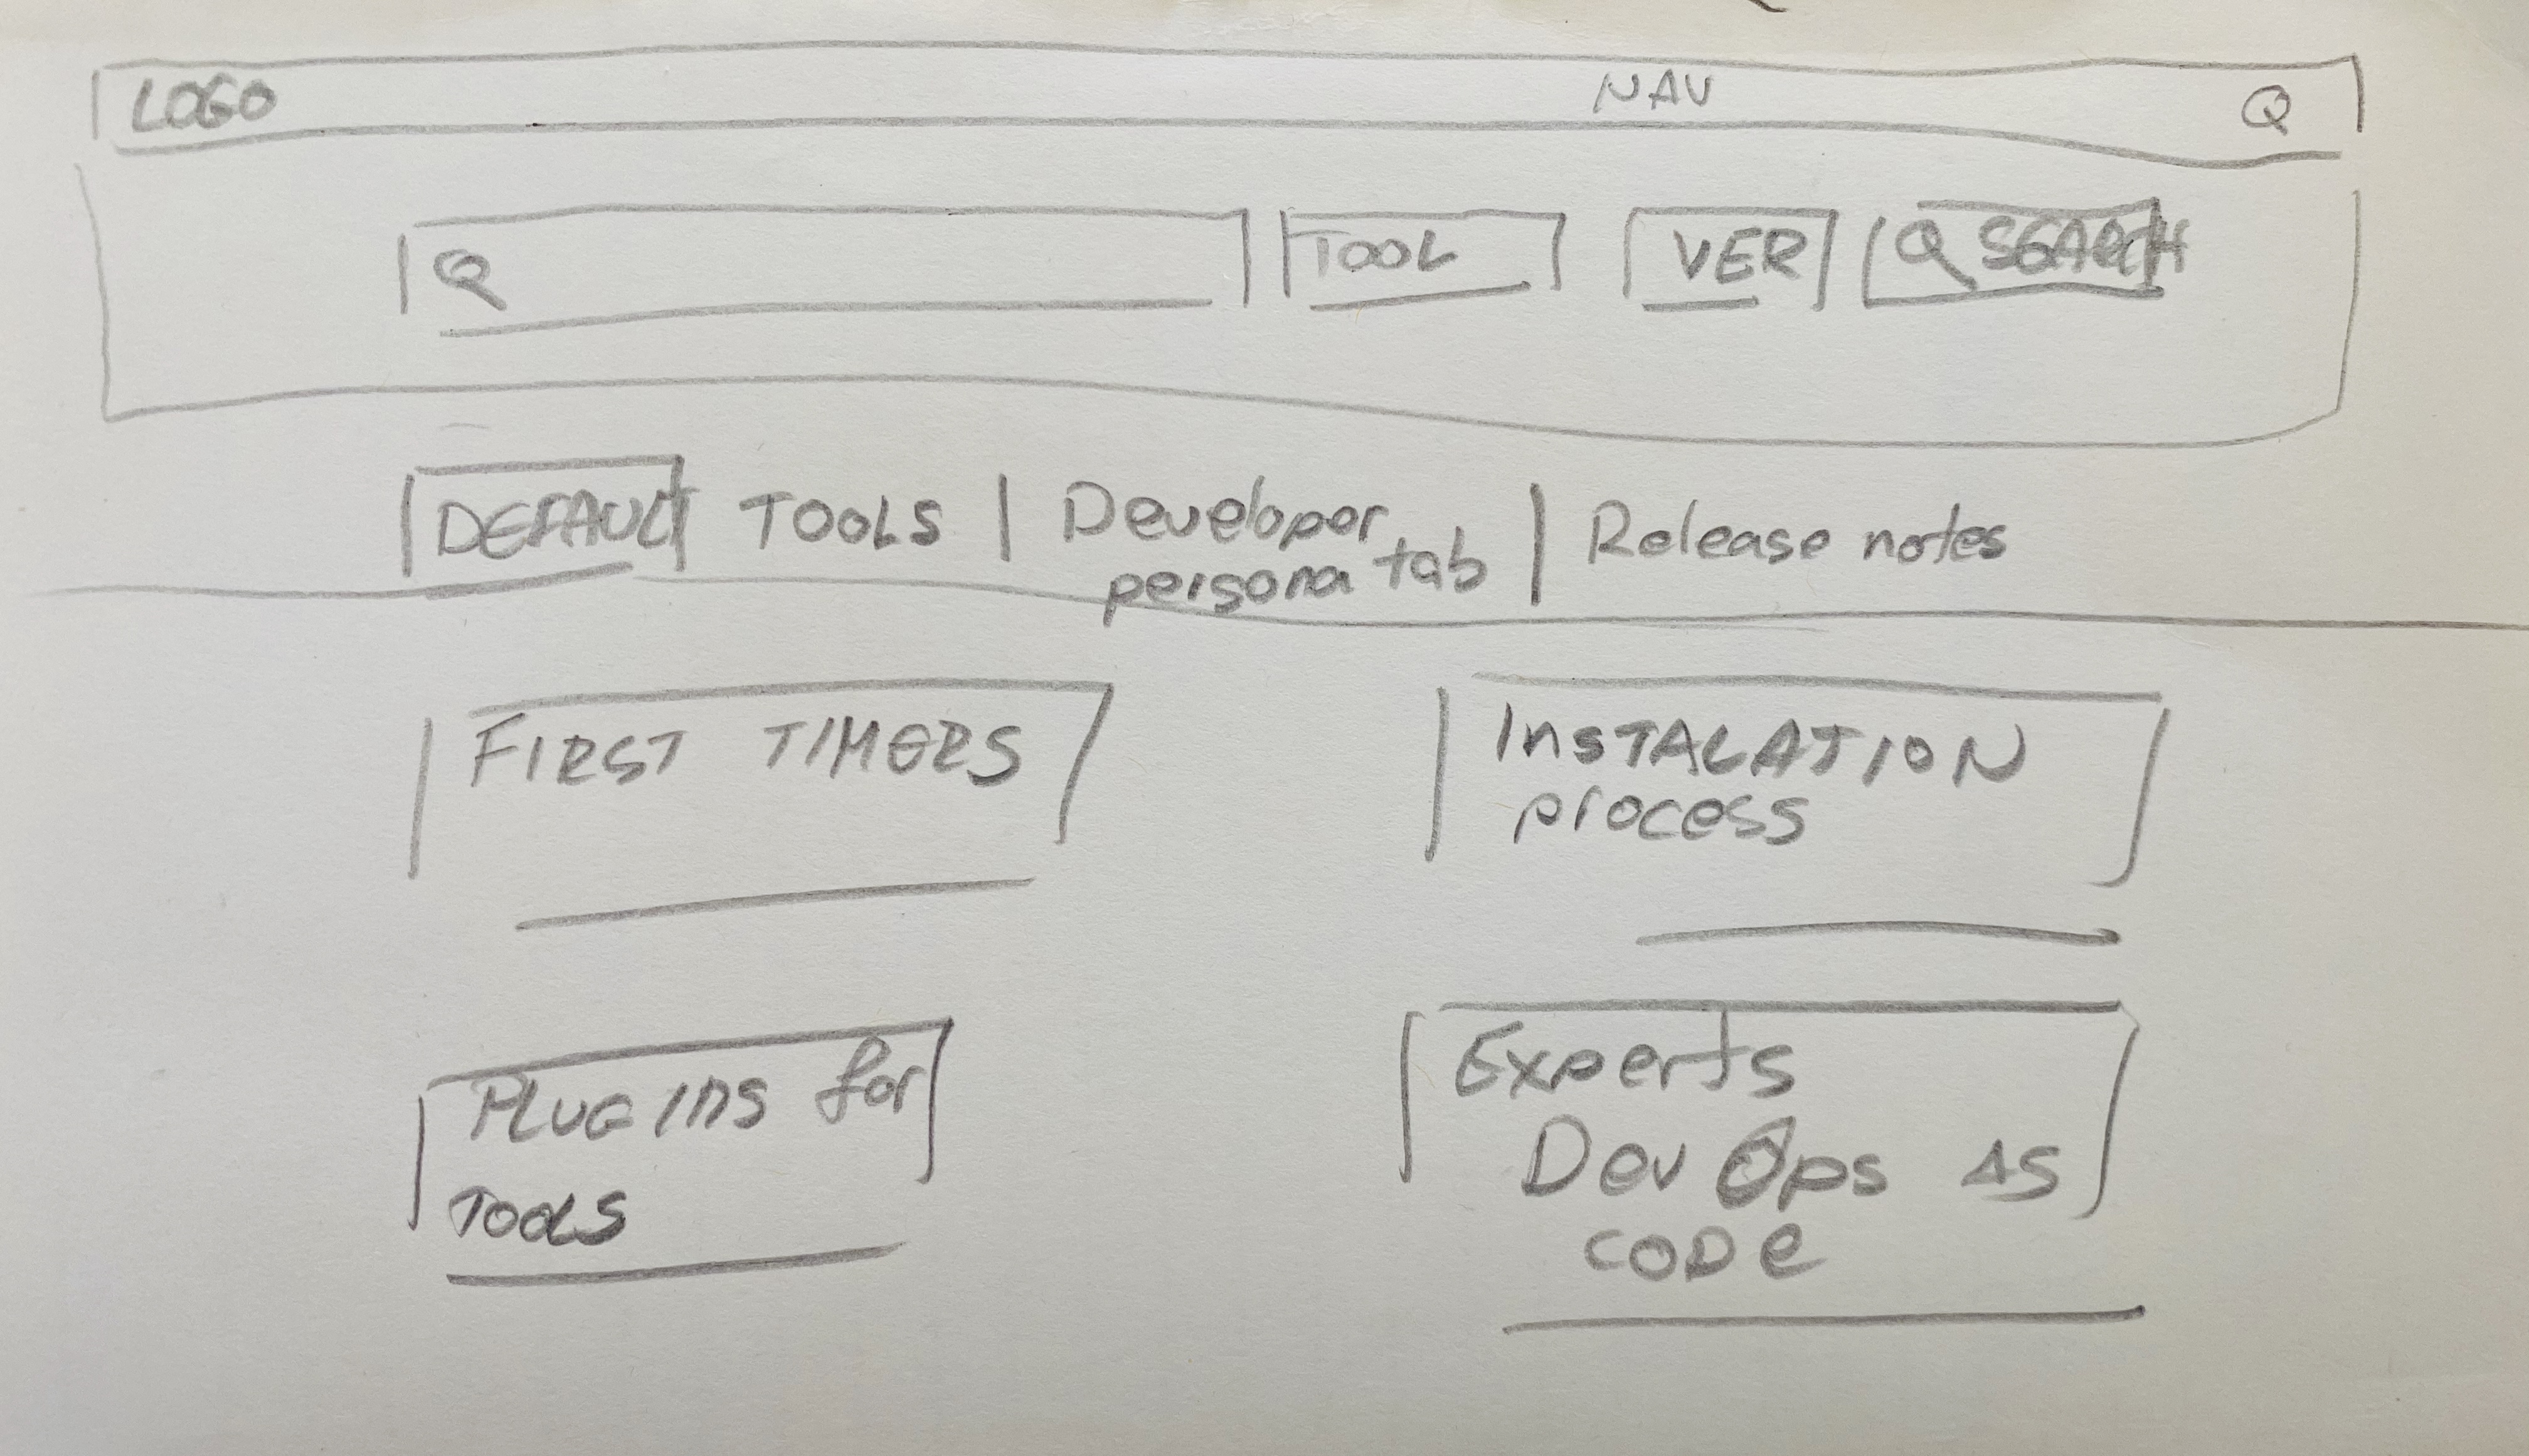 LOGO NAV Q
Q TOOL VER Q SEARCH
DEFAULT TOOLS | Developer persona tab | Release notes
FIRST TIMERS
InSTALATION
process
PLUGINS for
TOOLS
Experts
DevOps AS
CODe